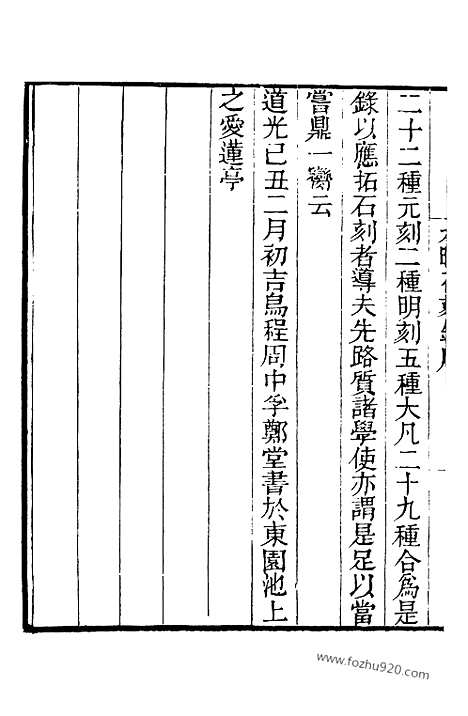 二十二種元刻二種明刻五種大凡二十九種合爲是
錄以應拓石刻者導夫先路質諸學使亦謂是足以當
嘗鼎一臠云
道光己丑二月初吉烏程周中孚鄭堂書於東園池上
之愛蓮亭
www.fozhu920.com